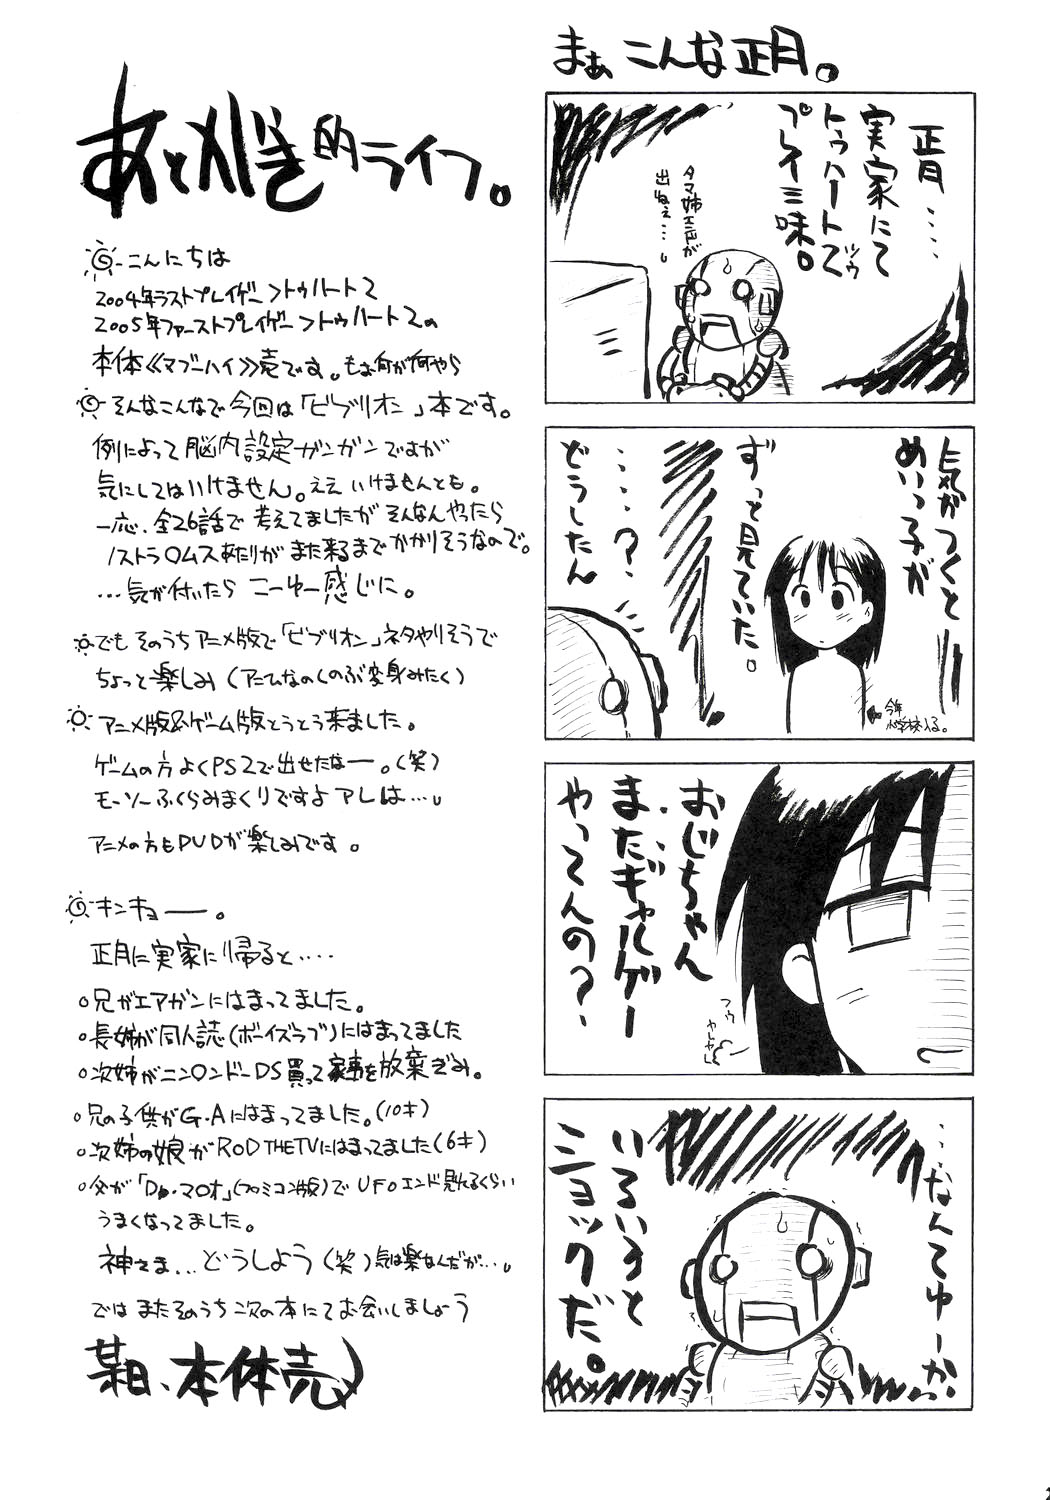 まぁこんな正月。
正月‥‥
実家にて
トゥハート2ツゥ
プレイ三昧。
タマ姉エロが
出ねぇ‥‥。
気がつくと
めいっ子が
ずっと見ていた。
今年
小学校入る。
‥‥?
どうしたん
おじちゃん
またギャルゲー
やってんの?
フゥ
ヤレヤレ
‥なんてゆーか
いろいろと
ショックだ。
あとがき的ライフ。
こんにちは
2004年ラストプレイゲー>トゥハート2
2005年ファーストプレイゲー>トゥハート2の
本体《マブーハイ》売です。もぉ何が何やら
そんなこんなで今回は「ビブリオン」本です。
例によって脳内設定ガンガンですが
気にしてはいけません。ええいけませんとも。
一応、全26話で考えてましたがそんなんやったら
ノストラ〇ムスあたりがまた来るまでかかりそうなので。
…気が付いたらこーゆー感じに。
でもそのうちアニメ版で「ビブリオン」ネタやりそうで
ちょっと楽しみ(アニムなのくのぶ変身みたく)
アニメ版&ゲーム版とうとう来ました。
ゲームの方よくPS2で出せたなー。(笑)
モーソーふくらみまくりですよアレは…。
アニメの方もDVDが楽しみです。
キンキョー。
正月に実家に帰ると‥‥
○兄がエアガンにはまってました。
○長姉が同人誌(ボーイズラブ)にはまってました
○次姉がニン〇ンドーDS買って家事を放棄ぎみ。
○兄の子供がG・Aにはまってました。(10才)
○次姉の娘がROD THE TVにはまってました(6才)
○父が「Dr.マ〇オ」(ファミコン版)でUFOエンド見れるくらい
うまくなってました。
神さま…どうしよう(笑)気は楽なんだが…。
ではまたそのうち次の本にてお会いしましょう
某日、本体売